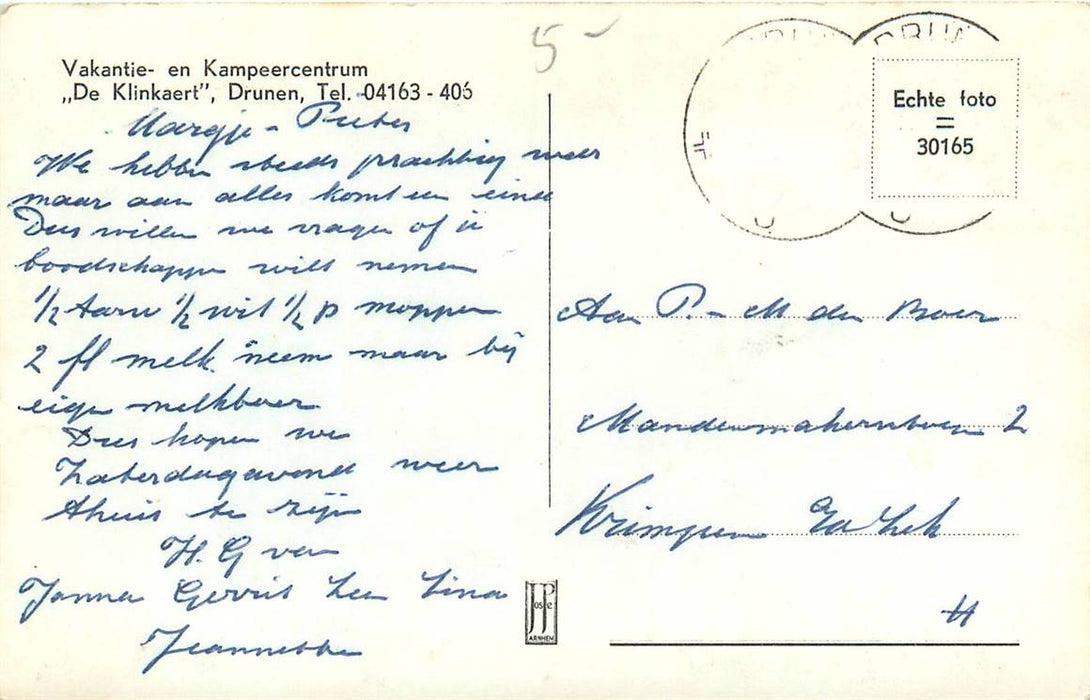 5-
Vakantie- en Kampeercentrum
„De Klinkaert”, Drunen, Tel. 04163 - 406
Margje - Pieter
We hebben steeds prachtig weer
maar aan alles komt een einde
Dus willen we vragen of u
boodschappen wilt nemen
1/2 tarw 1/2 wit 1/2 p moppen
2 fl melk neem maar bij
eigen melkboer
Dus hopen we
Zaterdagavond weer
thuis te zijn
H. G van
Janna Gerrit Lena
Jeannette
DRUN
Echte foto
=
30165
Aan P. - M den Boer
Mandenmakerstraat 2
Krimpen a/d Lek
JP
OS PE
ARNHEM